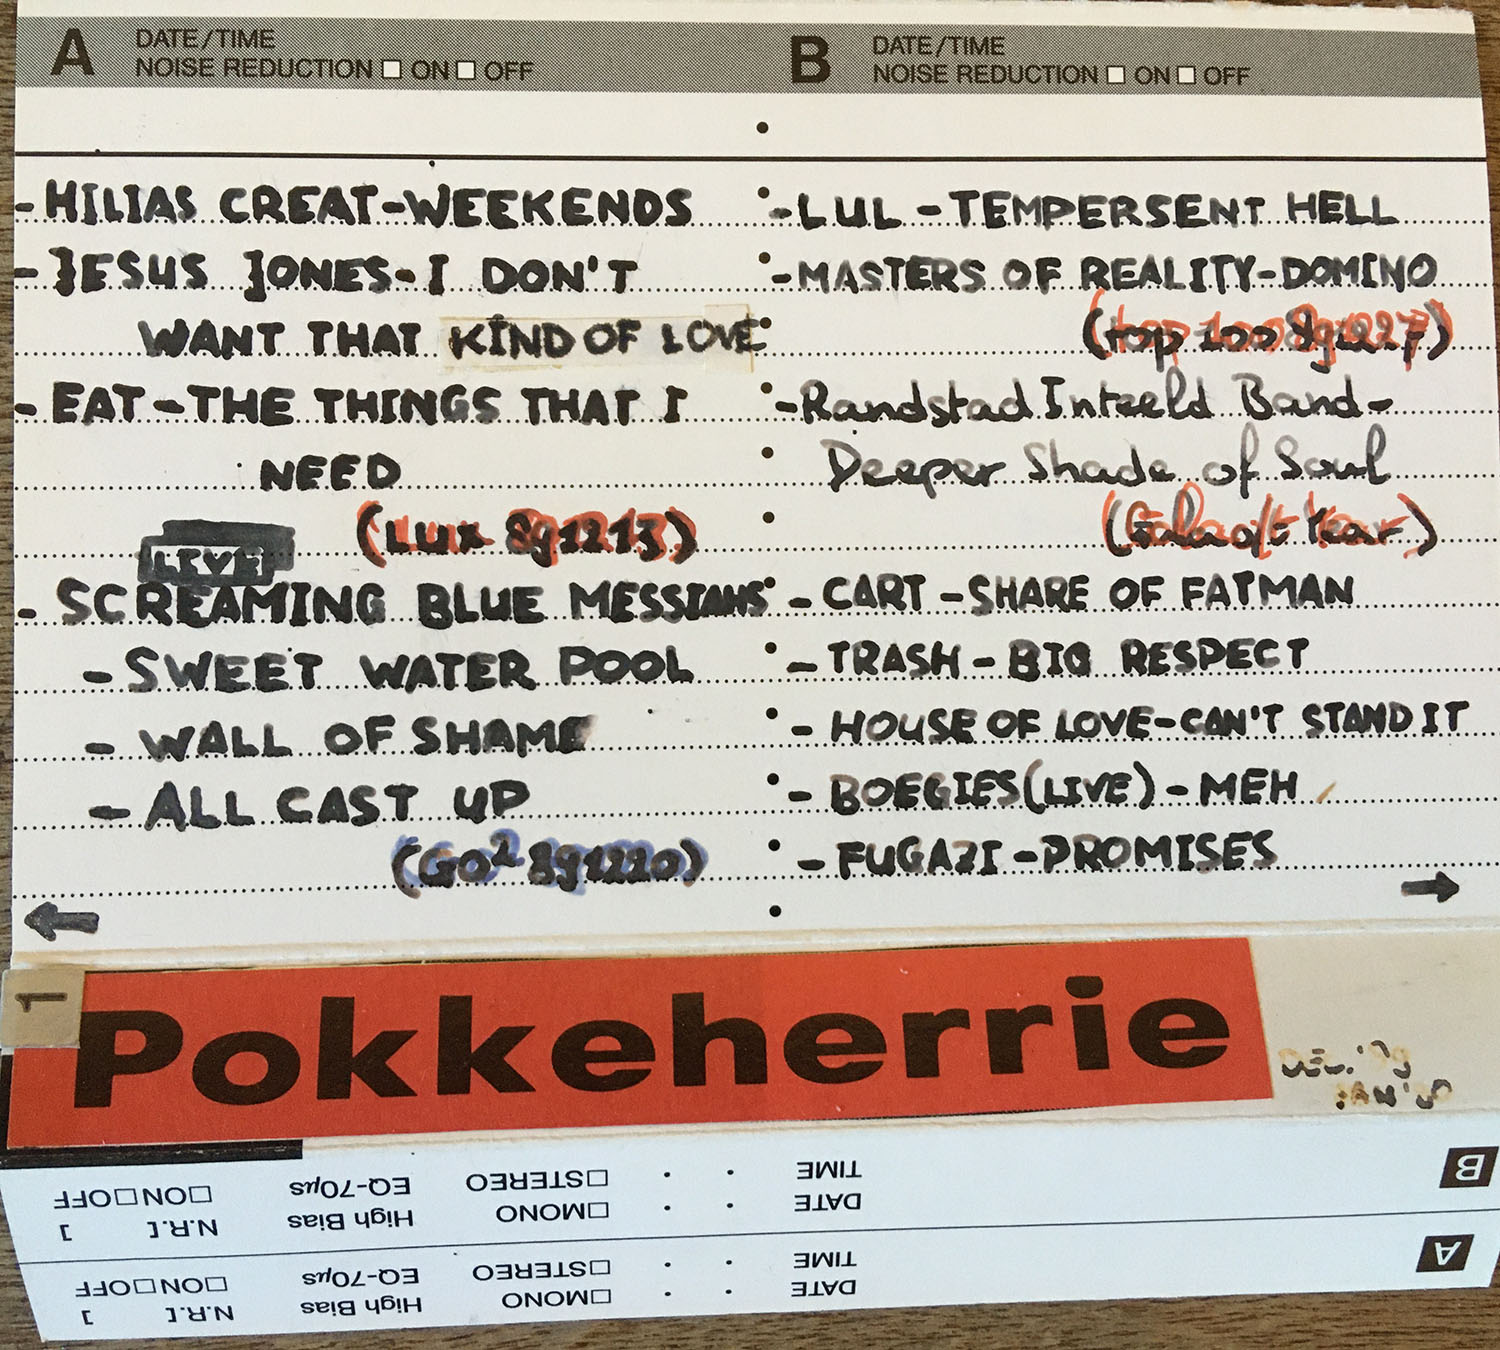 A DATE/TIME
NOISE REDUCTION □ ON □ OFF
- HILIAS CREAT - WEEKENDS
- JESUS JONES - I DON'T
WANT THAT KIND OF LOVE
- EAT - THE THINGS THAT I
NEED
(LUX 891213)
LIVE
- SCREAMING BLUE MESSIAHS
- SWEET WATER POOL
- WALL OF SHAME
- ALL CAST UP
(GO² 891220)
←
B DATE/TIME
NOISE REDUCTION □ ON □ OFF
- LUL - TEMPERSENT HELL
- MASTERS OF REALITY - DOMINO
(top 100 891227)
- Randstad Inteeld Band -
Deeper Shade of Soul
- CART - SHARE OF FATMAN
- TRASH - BIG RESPECT
- HOUSE OF LOVE - CAN'T STAND IT
- BOEGIES (LIVE) - MEH
- FUGAZI - PROMISES
→
1 Pokkeherrie
DEC. '89
JAN '90
A DATE TIME
□MONO □STEREO
High Bias EQ-70µs
N.R. [ ] □ON □OFF
B DATE TIME
□MONO □STEREO
High Bias EQ-70µs
N.R. [ ] □ON □OFF